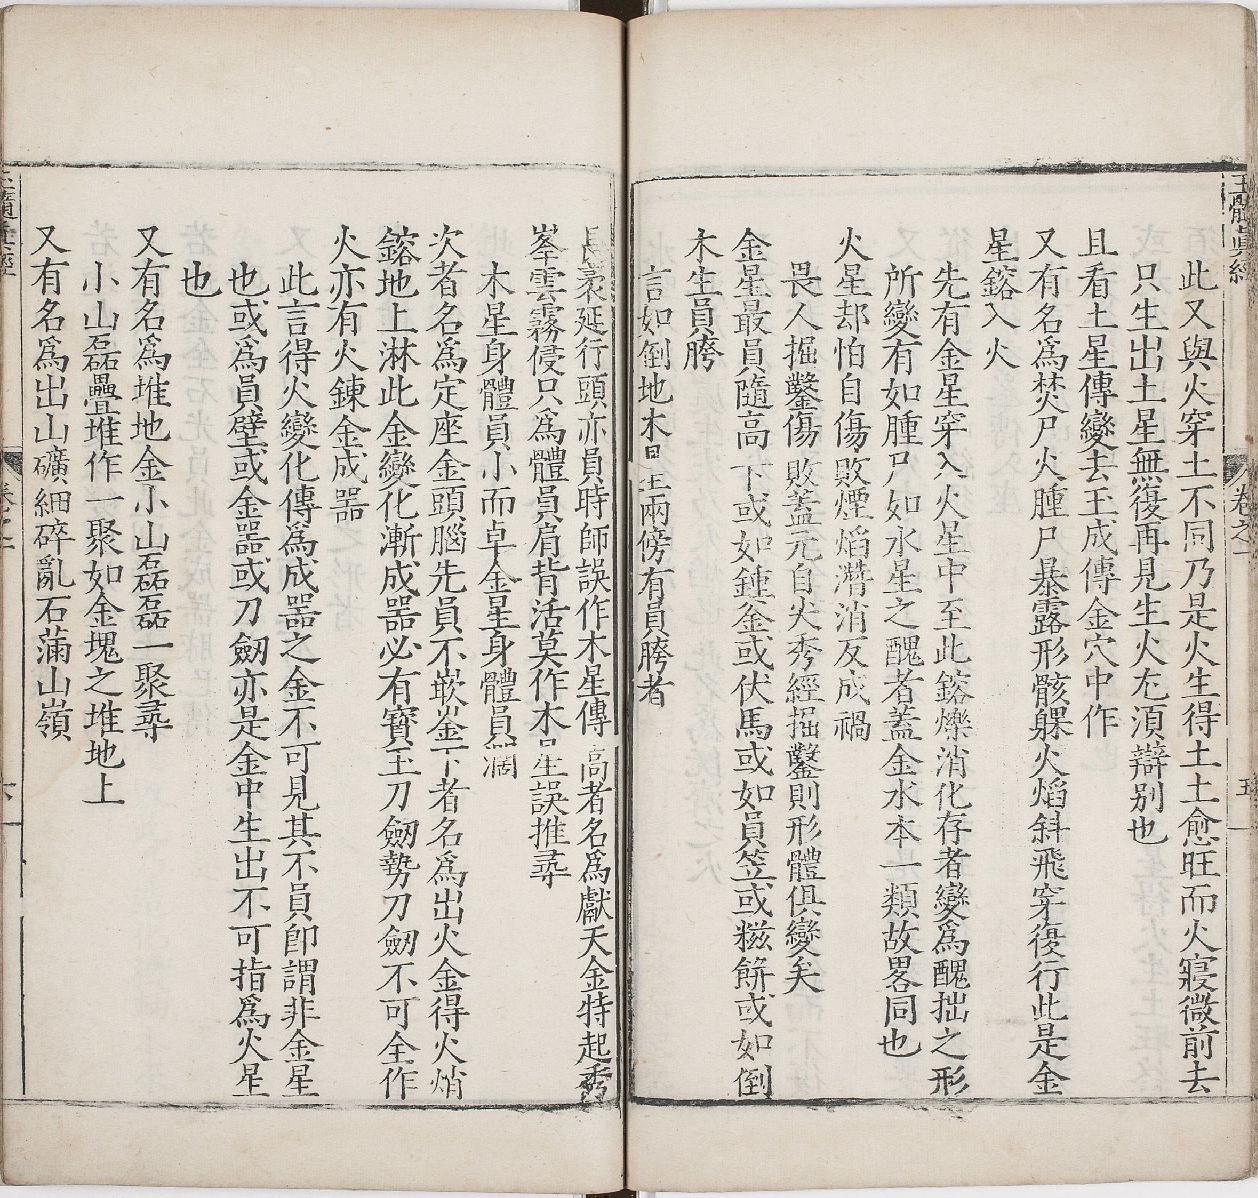 玉髓真經
卷之二
五
此又與火穿土不同乃是火生得土土愈旺而火寖微前去
只生出土星無復再見生火尤須辯别也
且看土星傳變去王成傳金穴中作
又有名爲焚尸火腫尸暴露形骸躶火焰斜飛穿復行此是金
星鎔入火
先有金星穿入火星中至此鎔爍消化存者變爲醜拙之形
所變有如腫尸如水星之醜者蓋金水本一類故畧同也
火星却怕自傷敗煙焰潛消反成禍
畏人掘鑿傷敗蓋元自火秀經掘鑿則形體俱變矣
金星最員隨高下或如鍾釜或伏馬或如員笠或糍餅或如倒
木生員胯
言如倒地木星兩傍有員胯者
長裊延行頭亦員時師誤作木星傳高者名爲獻天金特起秀
峯雲霧侵只爲體員肩背活莫作木星誤推尋
木星身體員小而卓金星身體員濶
次者名爲定座金頭腦先員不嶔崟下者名爲出火金得火焇
鎔地上淋此金變化漸成器必有寶玉刀劒勢刀劒不可全作
火亦有火鍊金成器
此言得火變化傳爲成器之金不可見其不員卽謂非金星
也或爲員璧或金器或刀劒亦是金中生出不可指爲火星
也
又有名爲堆地金小山磊磊一聚尋
小山磊疊堆作一聚如金塊之堆地上
又有名爲出山礦細碎亂石蒲山嶺
玉髓真經
卷之二
六